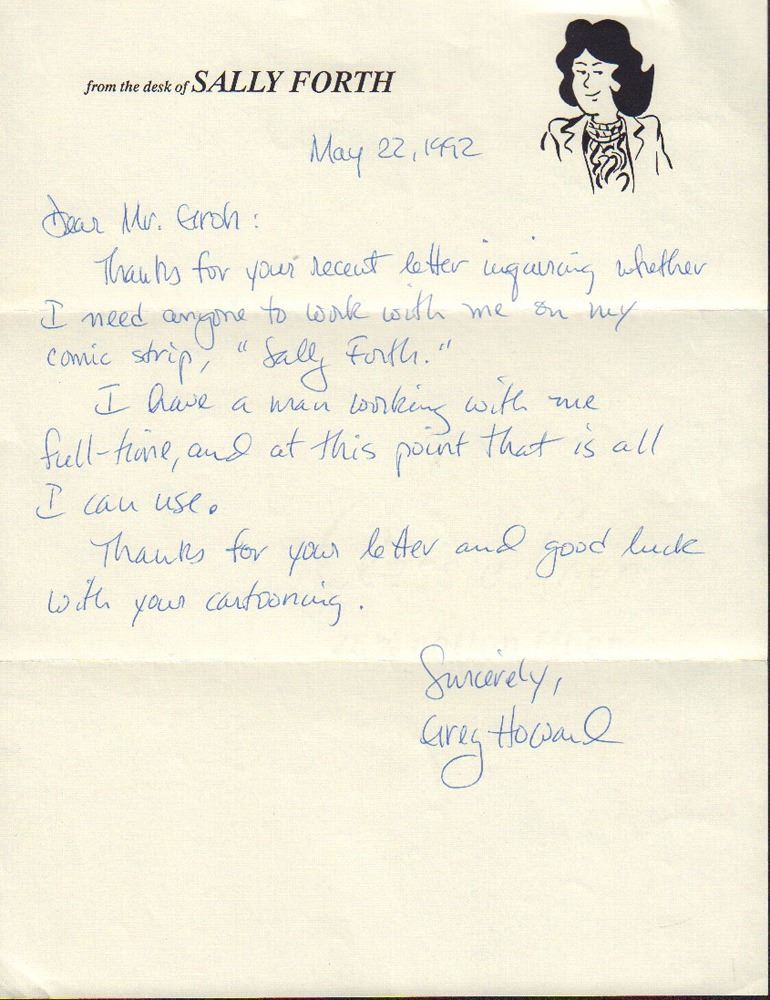 from the desk of SALLY FORTH
May 22, 1992
Dear Mr. Groh:
Thanks for your recent letter inquiring whether
I need anyone to work with me on my
comic strip, "Sally Forth."
I have a man working with me
full-time, and at this point that is all
I can use.
Thanks for your letter and good luck
with your cartooning.
Sincerely,
Greg Howard